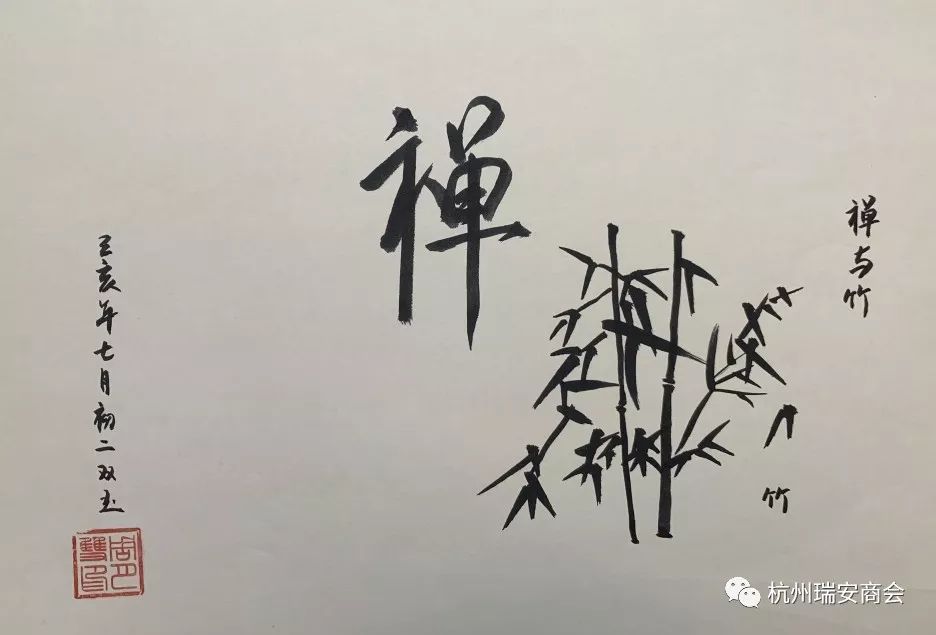 禅与竹
竹
禅
己亥年七月初二双玉
杭州瑞安商会